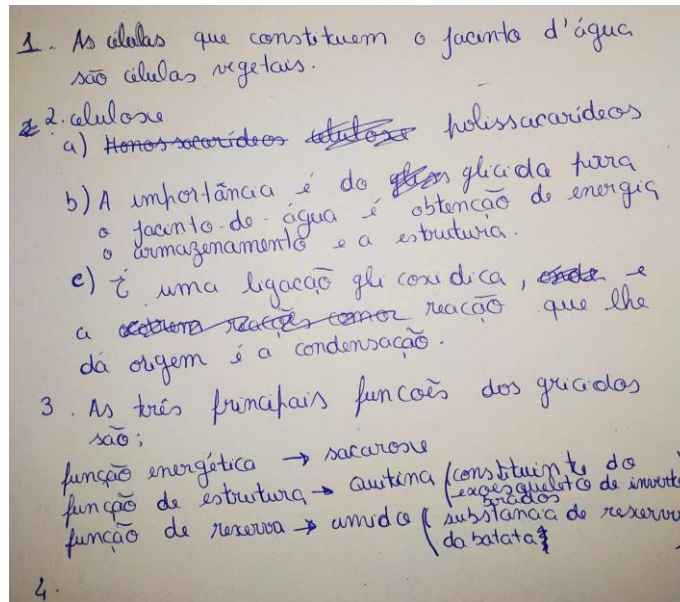 1. As células que constituem o jacinto d'água
são células vegetais.
2. celulose
a) Monossacarídeos celulose polissacarídeos
b) A importância é do glicida para
o jacinto-de-água é obtenção de energia
o armazenamento e a estrutura.
c) É uma ligação glicosidica, onde e
a ocorrem reações comor reacção que lhe
dá origem é a condensação.
3. As três principais funcoês dos gricidos
são;
função energética → sacarose
função de estrutura → quitina (constituinte do
exoesqueleto de inverte
brados
função de reserva → amido (substância de reserva
da batata)
4.